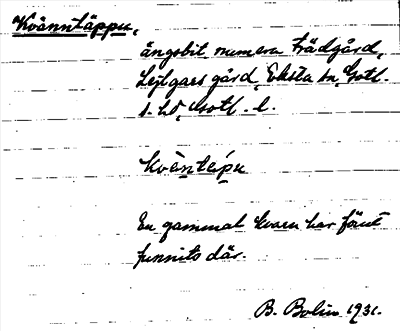 Kvänntäppu,
ängsbit numera trädgård,
Lejlgars gård, Eksta sn, Gotl.
s. hd, Gotl. l.
Kvä̀ntä́pu
En gammal kvarn har fänt
funnits där.
B. Bolin 1931.